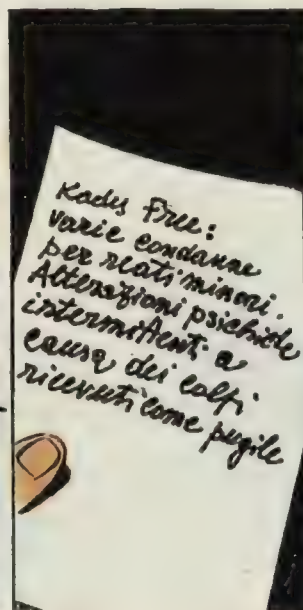 Kadys Free:
varie condanne
per reati minori.
Alterazioni psichiche
intermittenti a
causa dei colpi
ricevuti come pugile